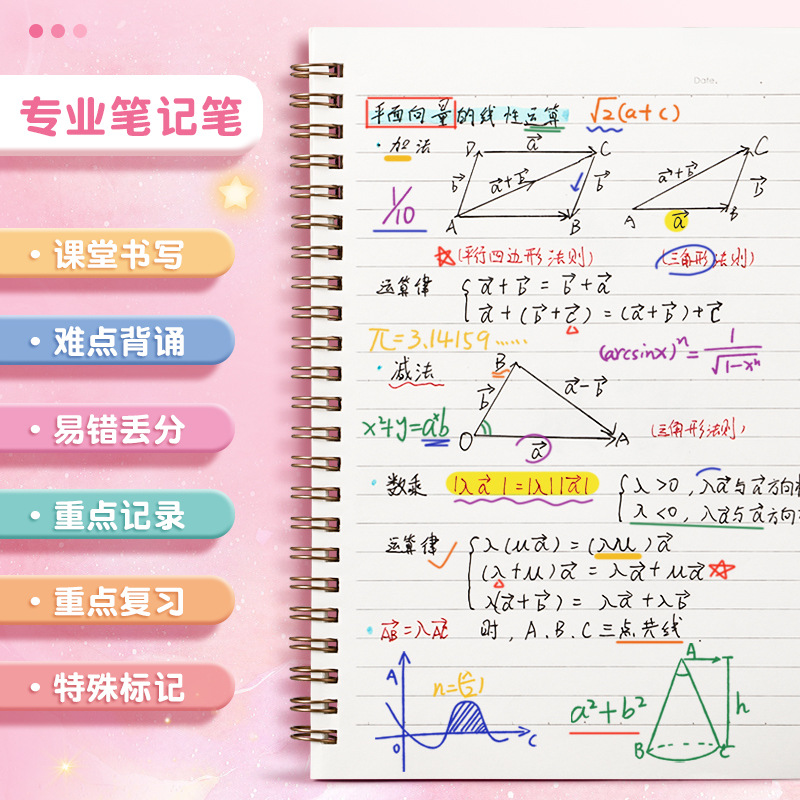 专业笔记笔
· 课堂书写
· 难点背诵
· 易错丢分
· 重点记录
· 重点复习
· 特殊标记
Date.
平面向量的线性运算 √2(a+c)
· 加法
D a⃗ C
b⃗ a⃗+b⃗ b⃗
A B
C
a⃗+b⃗ b⃗
A a⃗ B
1/10
☆(平行四边形法则) (三角形法则)
运算律 { a⃗+b⃗=b⃗+a⃗
a⃗+(b⃗+c⃗)=(a⃗+b⃗)+c⃗
π=3.14159……
(arcsinx)ⁿ=1/√1-xⁿ
· 减法
B
b⃗ a⃗-b⃗
O a⃗ A
x²+y=aˣb
(三角形法则)
· 数乘 |λa⃗|=|λ||a⃗| { λ>0,λa⃗与a⃗方向
λ<0,λa⃗与a⃗方向
运算律 { λ(μa⃗)=(λμ)a⃗
(λ+μ)a⃗=λa⃗+μa⃗☆
λ(a⃗+b⃗)=λa⃗+λb⃗
· AB⃗=λAC⃗ 时,A.B.C三点共线.
A
O C
a²+b²
A
h
B C